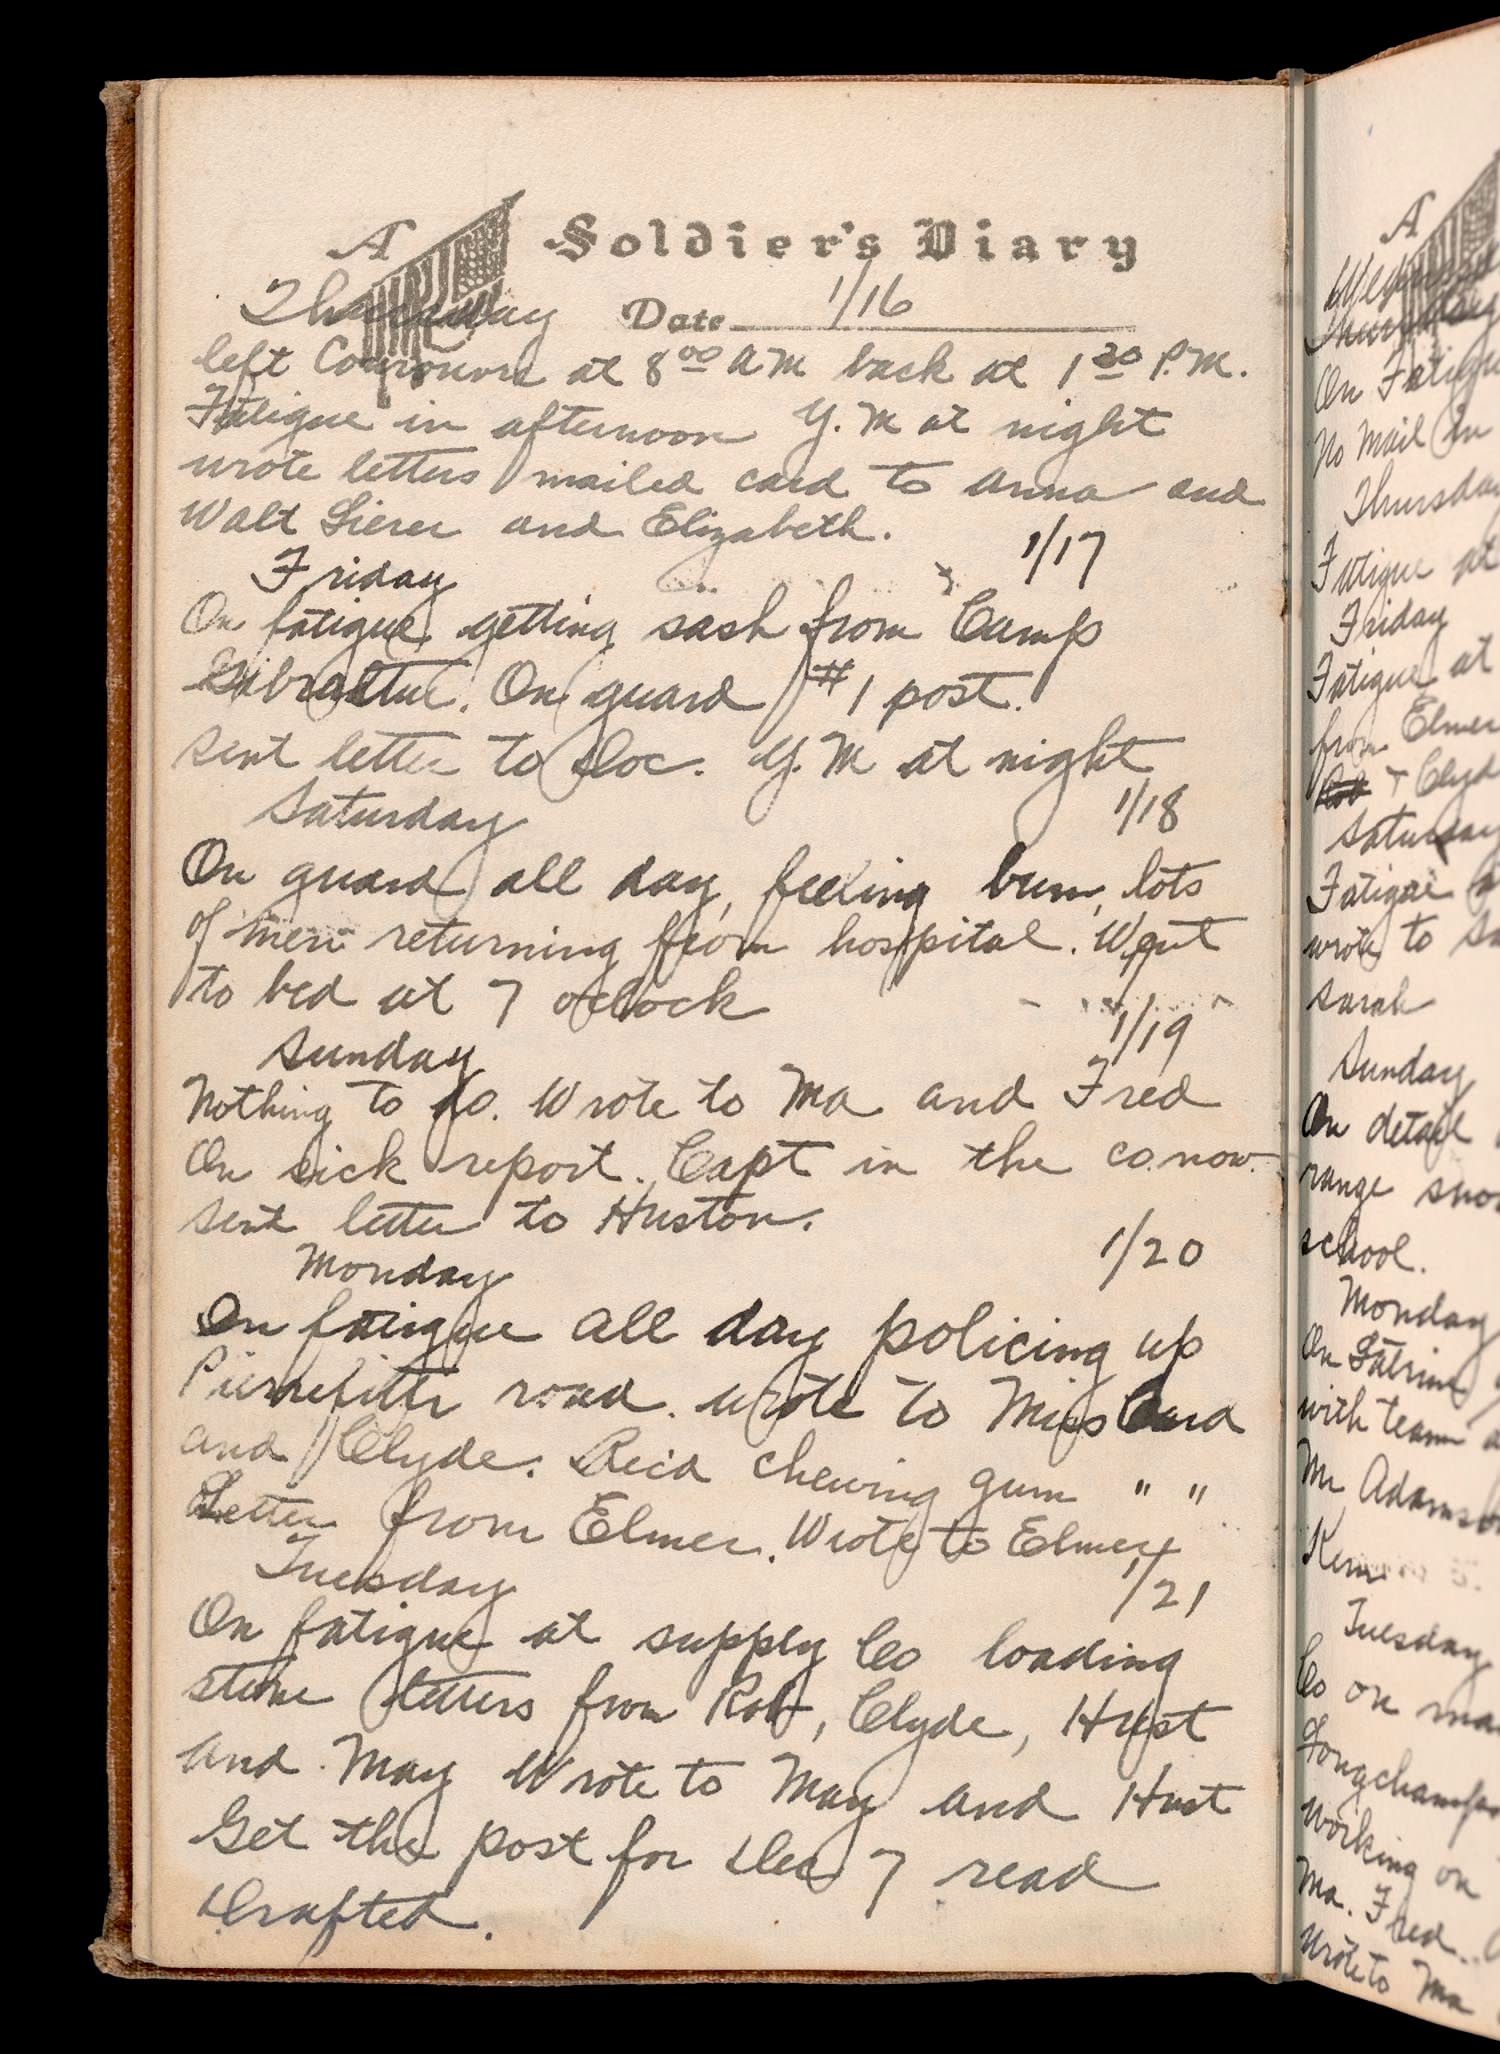 A Soldier's Diary
Thursday Date 1/16
left Courouvre at 8 00 AM back at 1 30 P.M.
Fatigue in afternoon Y.M at night
wrote letters mailed card to Anna and
Walt Sierer and Elizabeth.
1/17
Friday
On fatigue getting sash from Camp
Gibraltue. On guard #1 post.
sent letter to Doc. Y.M at night
1/18
Saturday
On guard all day, feeling bum, lots
of men returning from hospital. Went
to bed at 7 oclock
1/19
Sunday
Nothing to do. Wrote to Ma and Fred
On sick report. Capt in the co. now.
sent letter to Huston.
1/20
Monday
On fatigue all day policing up
Pierrefitte road. wrote to Miss Card
and Clyde. Recd chewing gum " "
Letter from Elmer. Wrote to Elmer
1/21
Tuesday
On fatigue at supply Co loading
stone letters from Rob, Clyde, Hust
and May Wrote to May and Hust
Get the post for Dec 7 read
Drafted.
A
On Fatigue
No Mail in
Thursday
Fatigue at
Friday
Fatigue at
from Elmer
+ Clyde
Saturday
Fatigue
wrote to
Sarah
Sunday
On detail
range
school.
Monday
On Latrine
with team
Mr Adams
Tuesday
Co on
Longchamps
working on
Ma. Fred.
Wrote to Ma